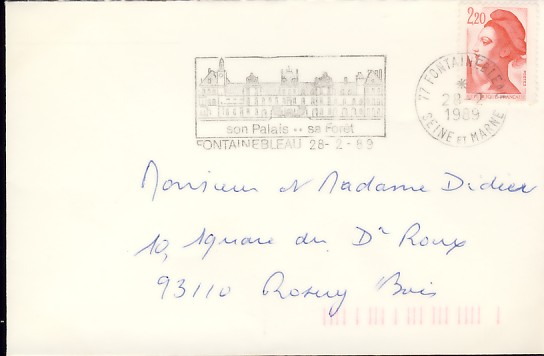 2,20
77 FONTAINEBLEAU
28-2
1989
SEINE ET MARNE
son Palais .. sa Forêt
FONTAINEBLEAU 28-2-89
Monsieur et Madame Didier
10, square du Dr Roux
93110 Rosny Bois